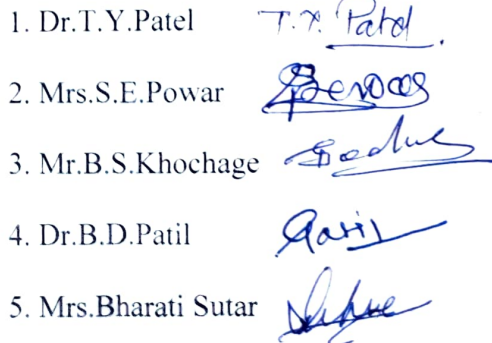 1. Dr.T.Y.Patel T.Y. Patel
2. Mrs.S.E.Powar
3. Mr.B.S.Khochage
4. Dr.B.D.Patil
5. Mrs.Bharati Sutar